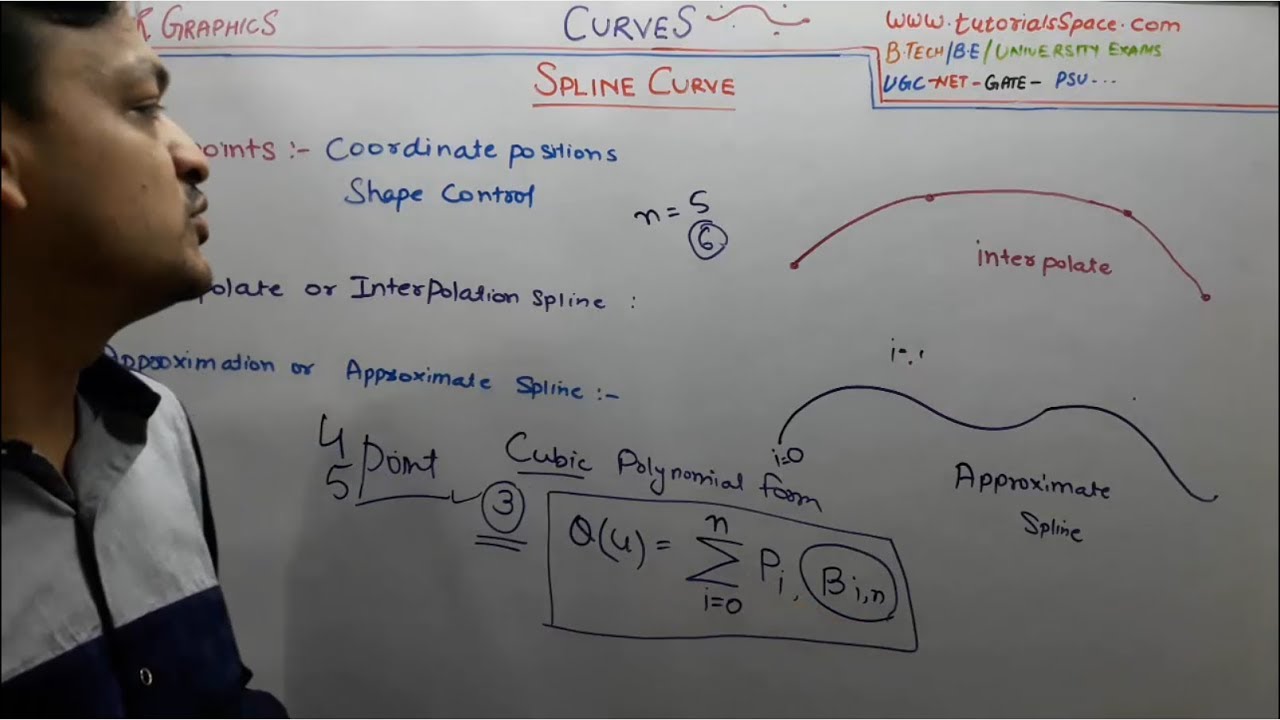 R GRAPHICS
CURVES
www.tutorialsSpace.com
B.TECH/B.E/UNIVERSITY EXAMS
UGC-NET-GATE- PSU...
SPLINE CURVE
oints :- Coordinate positions
Shape Control
n = 5
6
interpolate
polate or InterPolation Spline :
i=.
Approximation or Approximate Spline :-
i=0
4
5 Point
3
Cubic Polynomial form
Approximate
Spline
Q(u) = n∑i=0 Pi, Bi,n